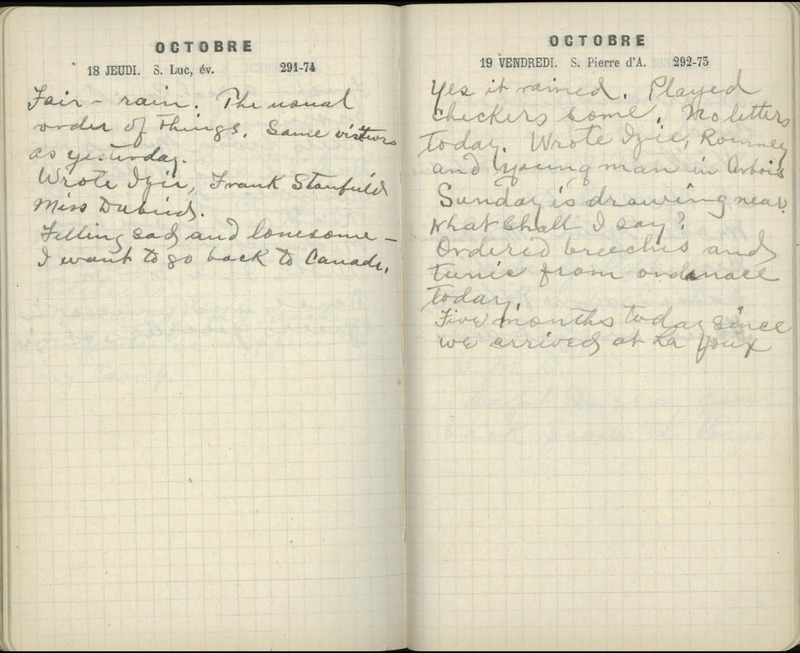 OCTOBRE
18 JEUDI. S. Luc, év. 291-74
Fair - rain. The usual
order of things. Same visitors
as yesterday.
Wrote Izie, Frank Stanfield
Miss
Felling sad and lonesome -
I want to go back to Canada.
OCTOBRE
19 VENDREDI. S. Pierre d'A. 292-73
Yes it rained. Played
checkers some. No letters
today. Wrote Izie, Romney
and young man in Arbois
Sunday is drawing near.
What shall I say?
Ordered breeches and
tunic from ordinace
today.
Five months today since
we arrived at La Joux